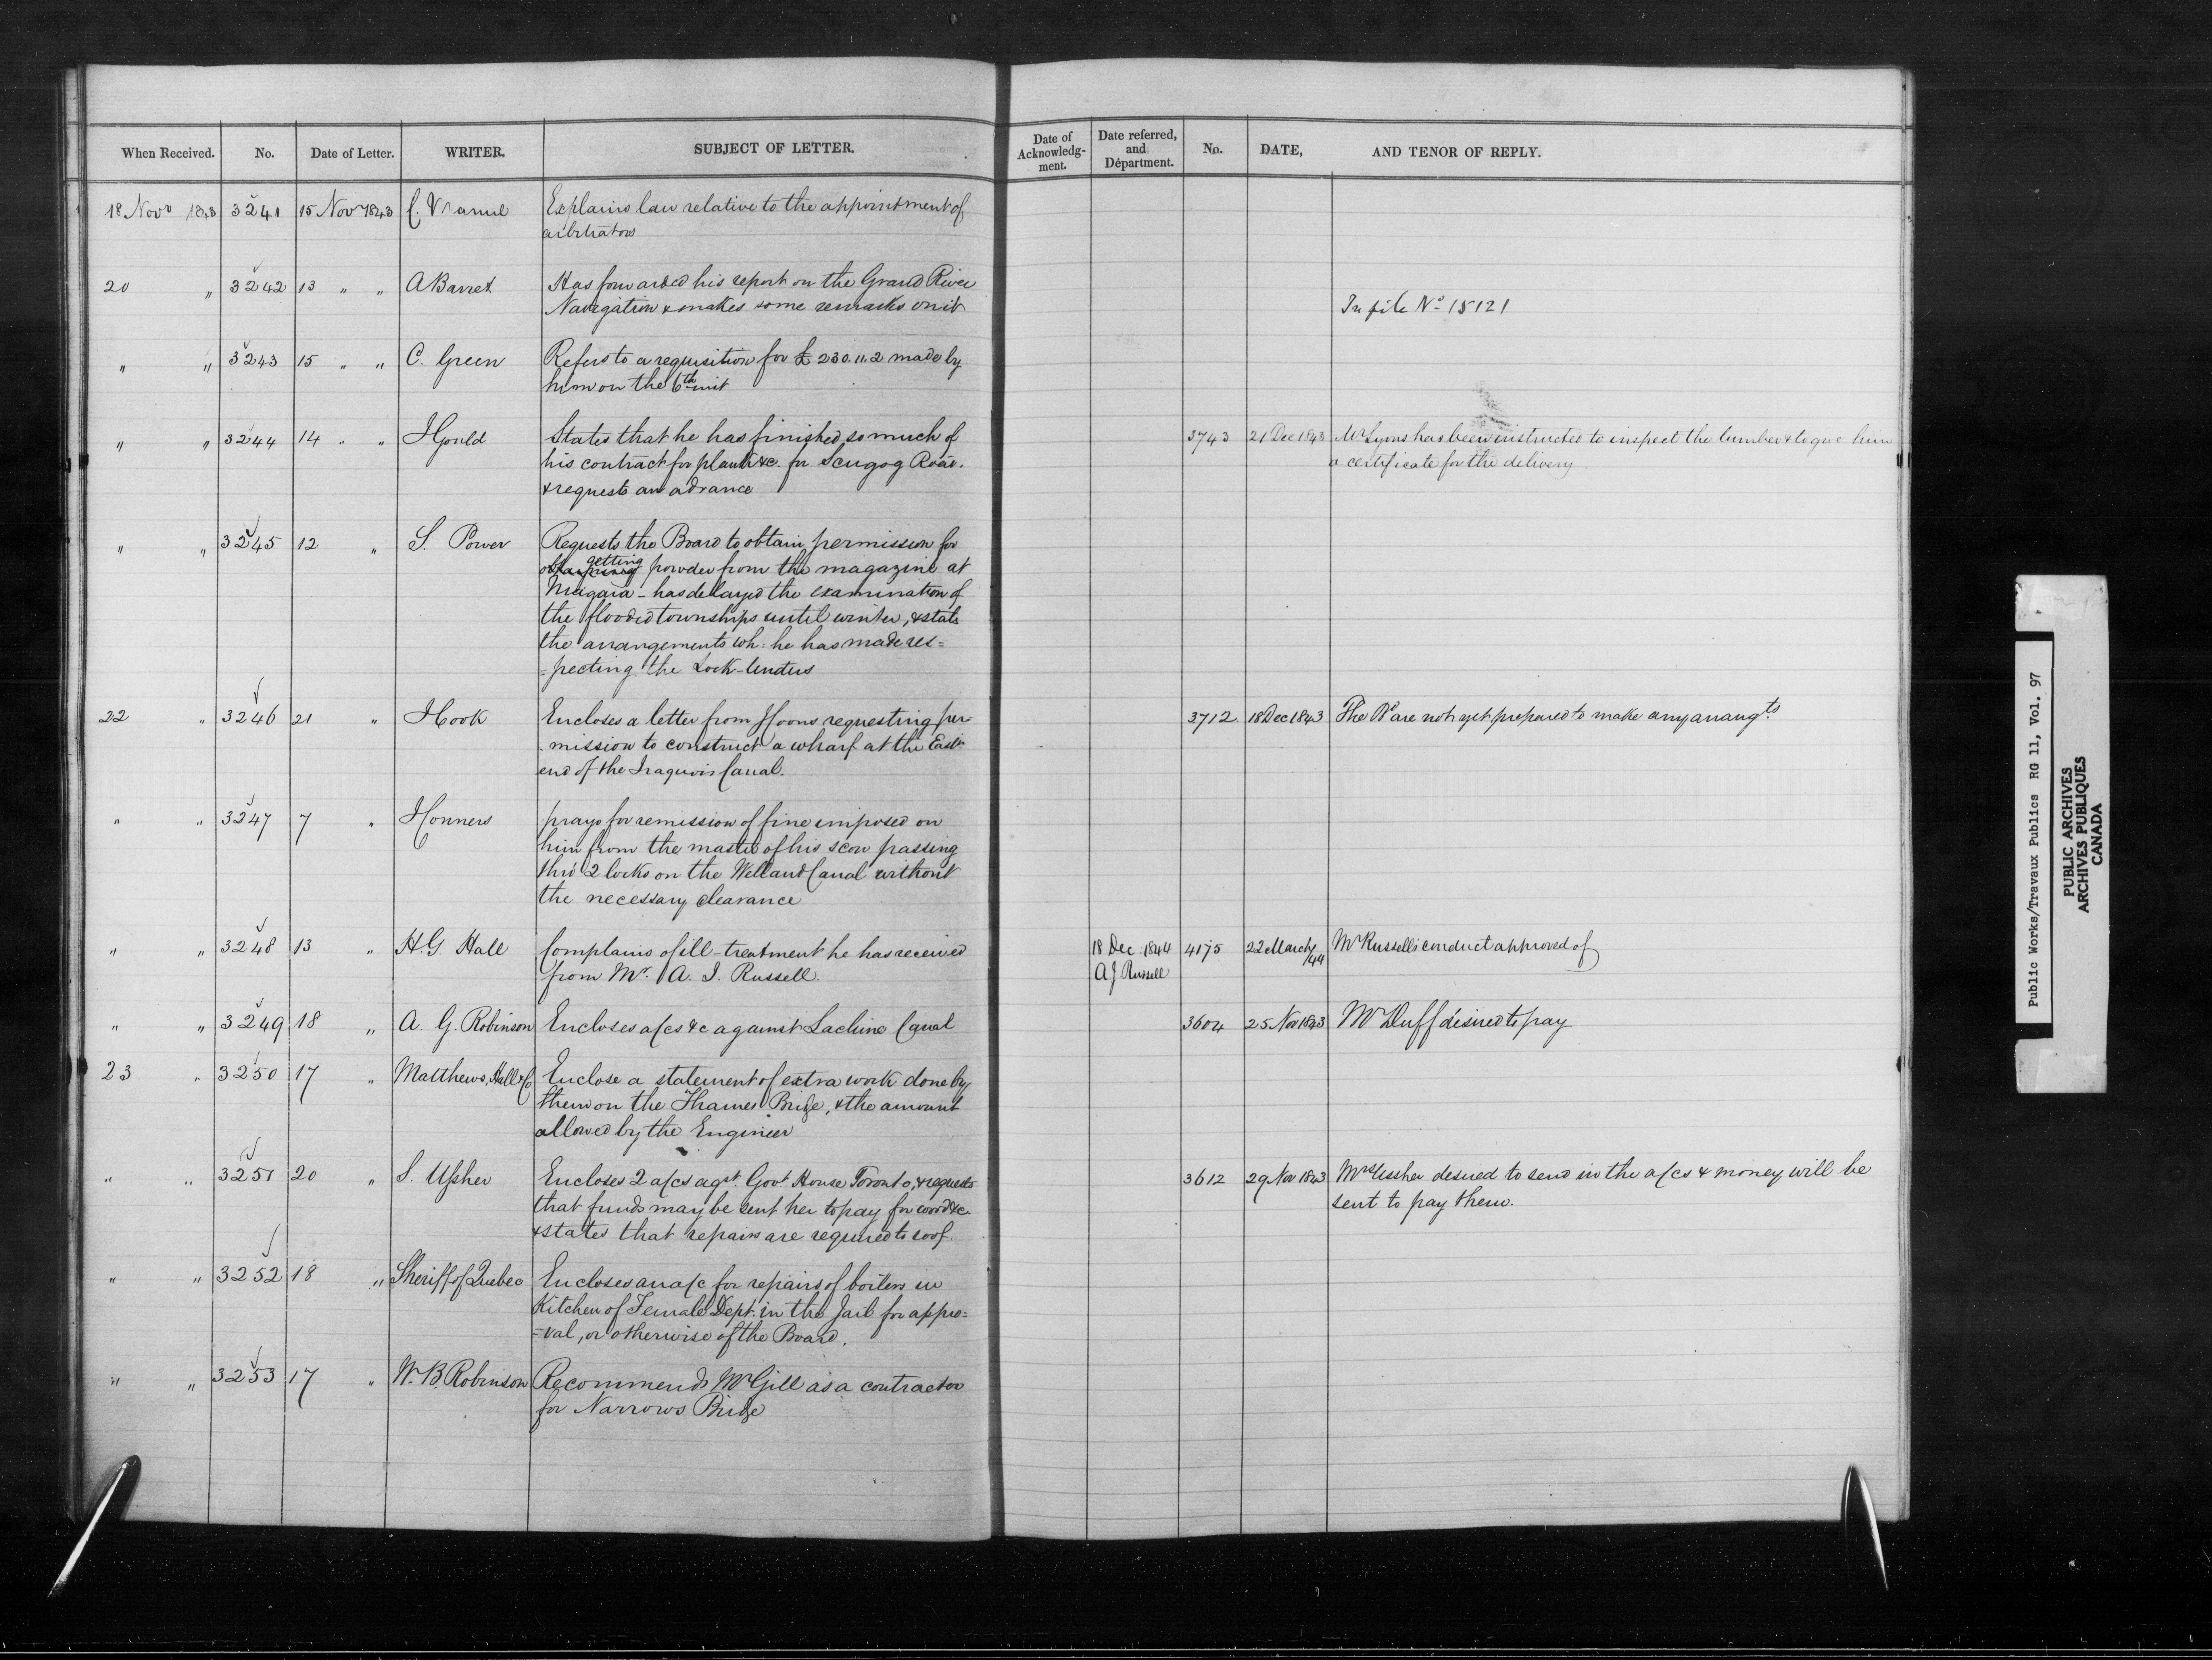 When Received. No. Date of Letter. WRITER. SUBJECT OF LETTER. Date of Acknowledg-ment. Date referred, and Départment. No. DATE, AND TENOR OF REPLY.
18 Novr 1843 3241 15 Nov 1843 Explains law relative to the appointment of
arbitrators
20 " 3242 13 " " A Barret Has forwarded his report on the Grand River
Navigation & makes some remarks on it In file No 15121
" " 3243 15 " " C. Green Refers to a requisition for £ 230.11.2 made by
him on the 6th inst
" " 3244 14 " " J Gould States that he has finished so much of 3743 21 Dec 1843 Mr Lyons has been instructed to inspect the lumber & to give him
his contract for plank &c. for Scugog Road. a certificate for the delivery
& requests an advance
" " 3245 12 " S. Power Requests the Board to obtain permission for
obtaining getting powder from the magazine at
Niagara - has delayed the examination of
the flooded townships until winter, & states
the arrangements wh: he has made res=
=pecting the Lock-tenders
22 " 3246 21 " J Cook Encloses a letter from J Coons requesting per 3712 18 Dec 1843 The Bd are not yet prepared to make any arrangts
-mission to construct a wharf at the East
end of the Iraquois Canal.
" " 3247 7 " J Conners prays for remission of fine imposed on
him from the master of his scow passing
thro' 2 locks on the Welland Canal without
the necessary clearance
" " 3248 13 " H.G. Hall Complains of ill-treatment he has received 18 Dec 1844 4175 22 March /44 Mr Russell's conduct approved of
from Mr. A. J. Russell. A J Russell
" " 3249 18 " A. G. Robinson Encloses a/cs &c against Lachine Canal 3604 25 Nov 1843 Mr Duff desired to pay
23 " 3250 17 " Matthews, Hall & Co Enclose a statement of extra work done by
them on the Thames Bridge, & the amount
allowed by the Engineer
" " 3251 20 " S. Ussher Encloses 2 a/cs agst. Govt House Toronto, & requests 3612 29 Nov 1843 Mrs Ussher desired to send in the a/cs & money will be
that funds may be sent her to pay for wood &c. sent to pay them.
& states that repairs are required to roof.
" " 3252 18 " Sheriff of Quebec Encloses an a/c for repairs of boilers in
Kitchen of Female Dept. in the Jail for appro=
=val, or otherwise of the Board.
" " 3253 17 " W. B. Robinson Recommends Mr Gill as a contractor
for Narrows Bridge
Public Works/Travaux Publics RG 11, Vol. 97
PUBLIC ARCHIVES
ARCHIVES PUBLIQUES
CANADA